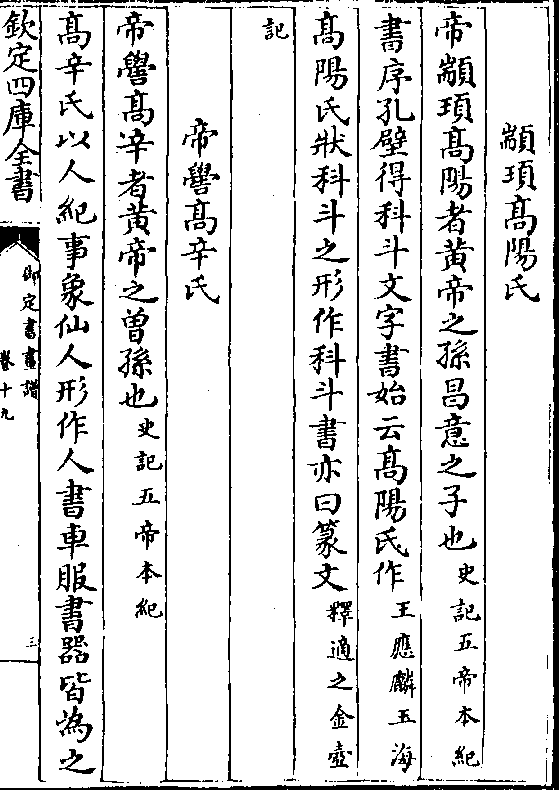 顓頊髙陽氏
帝顓頊髙陽者黄帝之孫昌意之子也史記五帝本紀
書序孔壁得科斗文字書始云髙陽氏作王應麟玉海
髙陽氏狀科斗之形作科斗書亦曰篆文釋適之金壺
記
帝嚳髙辛氏
帝嚳髙辛者黄帝之曽孫也史記五帝本紀
髙辛氏以人紀事象仙人形作人書車服書器皆為之
欽定四庫全書
御定書畫譜
卷十九
三